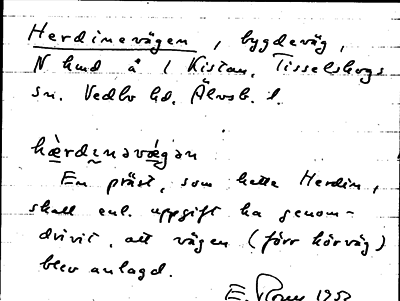 Herdinevägen, bygdeväg,
N hmd å 1 Kistan, Tisselskogs
sn. Vedbo hd. Älvsb. l.
hærdenavægan
En präst, som hette Herdin,
skall enl. uppgift ha genom-
drivit, att vägen (förr körväg)
blev anlagd.
E. 1952